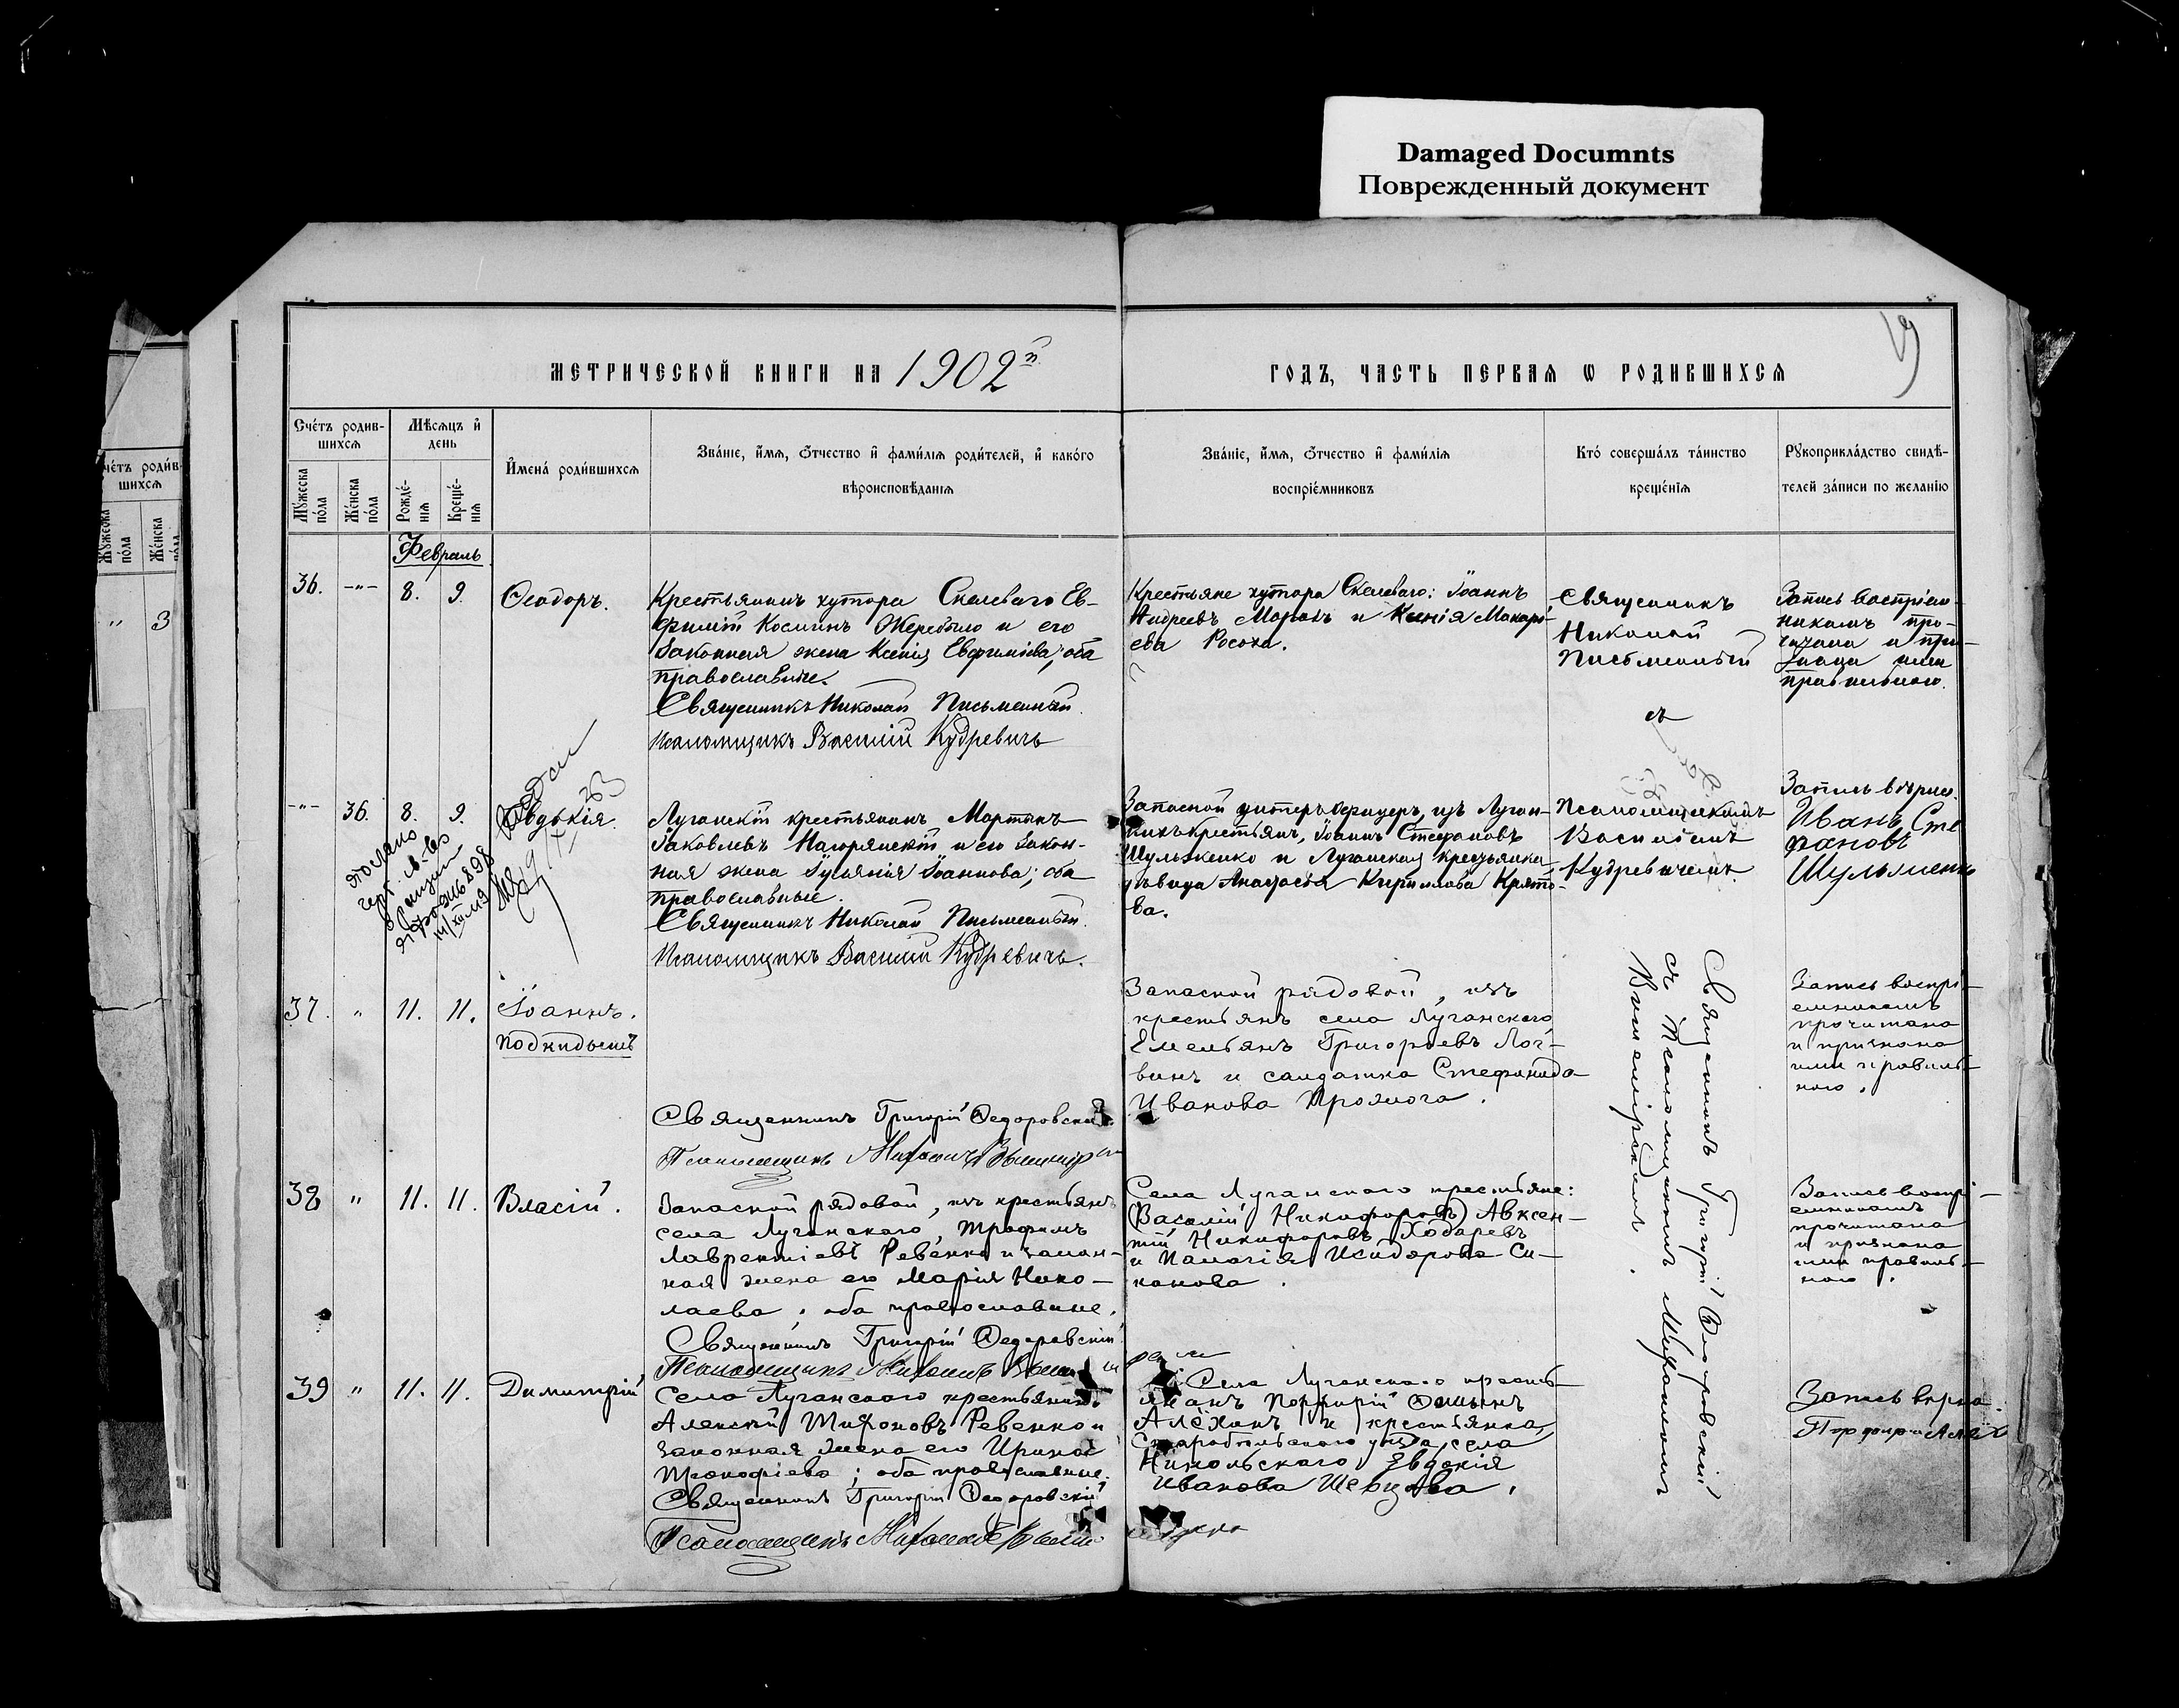 Damaged Documnts
Поврежденный документ
МЕТРИЧЕСКОЙ КНИГИ НА 1902й
ГОДЪ, ЧАСТЬ ПЕРВАЯ Ѡ РОДИВШИХСЯ
Счетъ родив-
шихся
Мужеска пола
Женска пола
Мѣсяцъ и
день
Рожде-
нія
Креще-
нія
Имена родившихся
Званіе, имя, ѻтчество и фамилія родителей, и какого
вѣроисповѣданія
Званіе, имя, ѻтчество и фамилія
воспріемниковъ
Кто совершалъ таинство
крещенія
Рукоприкладство свидѣ-
телей записи по желанію
четъ родив-
шихся
Мужеска
пола
Женска
" 3
Февраль
36. -"- 8. 9. Ѳеодоръ.
Крестьянинъ хутора Скелеваго Ев-
фимій Косминъ Жеребыло и его
законная жена Ксенія Евфимиева; оба
православные.
Священникъ Николай Письменный.
Псаломщикъ Василій Кудревичъ
Крестьяне хутора Скелеваго: Іоаннъ
Андреевъ Морозъ и Ксенія Макарі-
ева Росоха.
Священникъ
Николай
Письменный
съ
Запись воспріем-
никамъ про-
читана и при-
знана ими
правильною.
-"- 36. 8. 9. Евдокія.
Луганскій крестьянинъ Мартинъ
Іаковлевъ Нагорянскій и его закон-
ная жена Іуліанія Іоаннова; оба
православные.
Священникъ Николай Письменный.
Псаломщикъ Василій Кудревичъ.
Запасной унтеръ-офицеръ, изъ Луган-
скихъ крестьянъ, Іоаннъ Стефановъ
Шульженко и Луганская крестьянка
дѣвица Анастасія Кириллова Крято-
ва.
Псаломщикомъ
Василіемъ
Кудревичемъ.
Запись вѣрна.
Иванъ Сте
фановъ
Шульженко
37. " 11. 11. Іоаннъ.
подкидышъ
Священникъ Григорій Ѳедоровскій.
Псаломщикъ Михаилъ
Запасной рядовой, изъ
крестьянъ села Луганскаго
Емельянъ Григорьевъ Лог-
винъ и салдатка Стефанида
Иванова
Запись воспрі-
емникамъ
прочитана
и признана
ими правиль-
ною.
Священникъ Григорій Ѳеодоровскій
съ Псаломщикомъ Михаиломъ
38 " 11. 11. Власій.
Запасной рядовой, изъ крестьянъ
села Луганскаго, Трофимъ
Лаврентіевъ Ревенко и закон-
ная жена его Марія Нико-
лаева; оба православные.
Священникъ Григорій Ѳедоровскій
Псаломщикъ Михаилъ
Села Луганскаго крестьяне:
(Василій Никифоровъ) Авксен-
тій Никифоровъ Ходаревъ
и Пелагія Исидорова Си-
канова.
Запись воспрі-
емникамъ
прочитана
и признана
ими правиль-
ною.
39 " 11. 11. Димитрій
Села Луганскаго крестьянинъ
Алексѣй Тихоновъ Ревенко и
законная жена его Ирина
Прокофіева; оба православные.
Священникъ Григорій Ѳедоровскій
Псаломщикъ Михаилъ
Села Луганскаго кресть-
янинъ Порфирій Ѳоминъ
Алёхинъ и крестьянка,
Старобѣльскаго уѣзда, села
Никольскаго Евдокія
Иванова Шевцова.
Запись вѣрна.
Порфирій Алёх